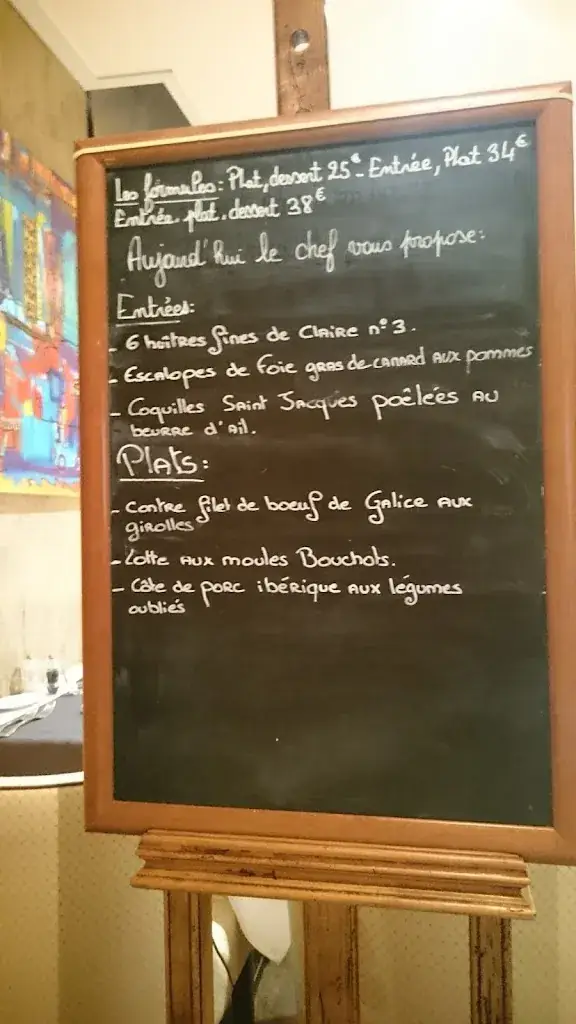 Les formules: Plat, dessert 25€ - Entrée, Plat 34€
Entrée. plat. dessert 38€
Aujourd'hui le chef vous propose:
Entrées:
- 6 huîtres fines de Claire n°3.
- Escalopes de foie gras de canard aux pommes
- Coquilles Saint Jacques poêlées au
beurre d'ail.
Plats:
- Contre filet de boeuf de Galice aux
girolles
- Lotte aux moules Bouchots.
- Côte de porc ibérique aux légumes
oubliés